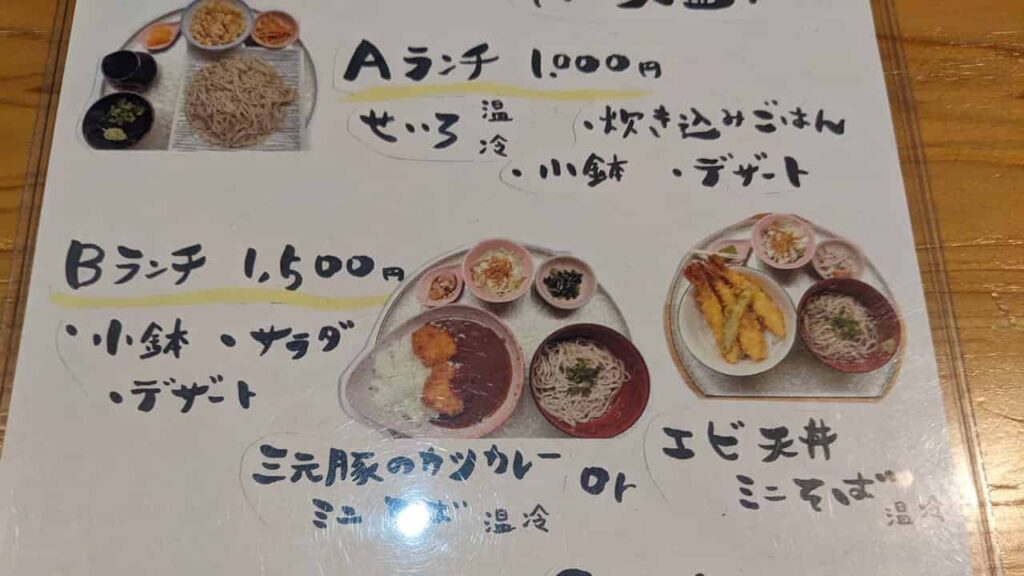 Aランチ 1,000円
せいろ 温 冷 ・炊き込みごはん
・小鉢 ・デザート
Bランチ 1,500円
・小鉢 ・サラダ
・デザート
三元豚のカツカレー
ミニそば 温 冷
or
エビ天丼
ミニそば 温 冷